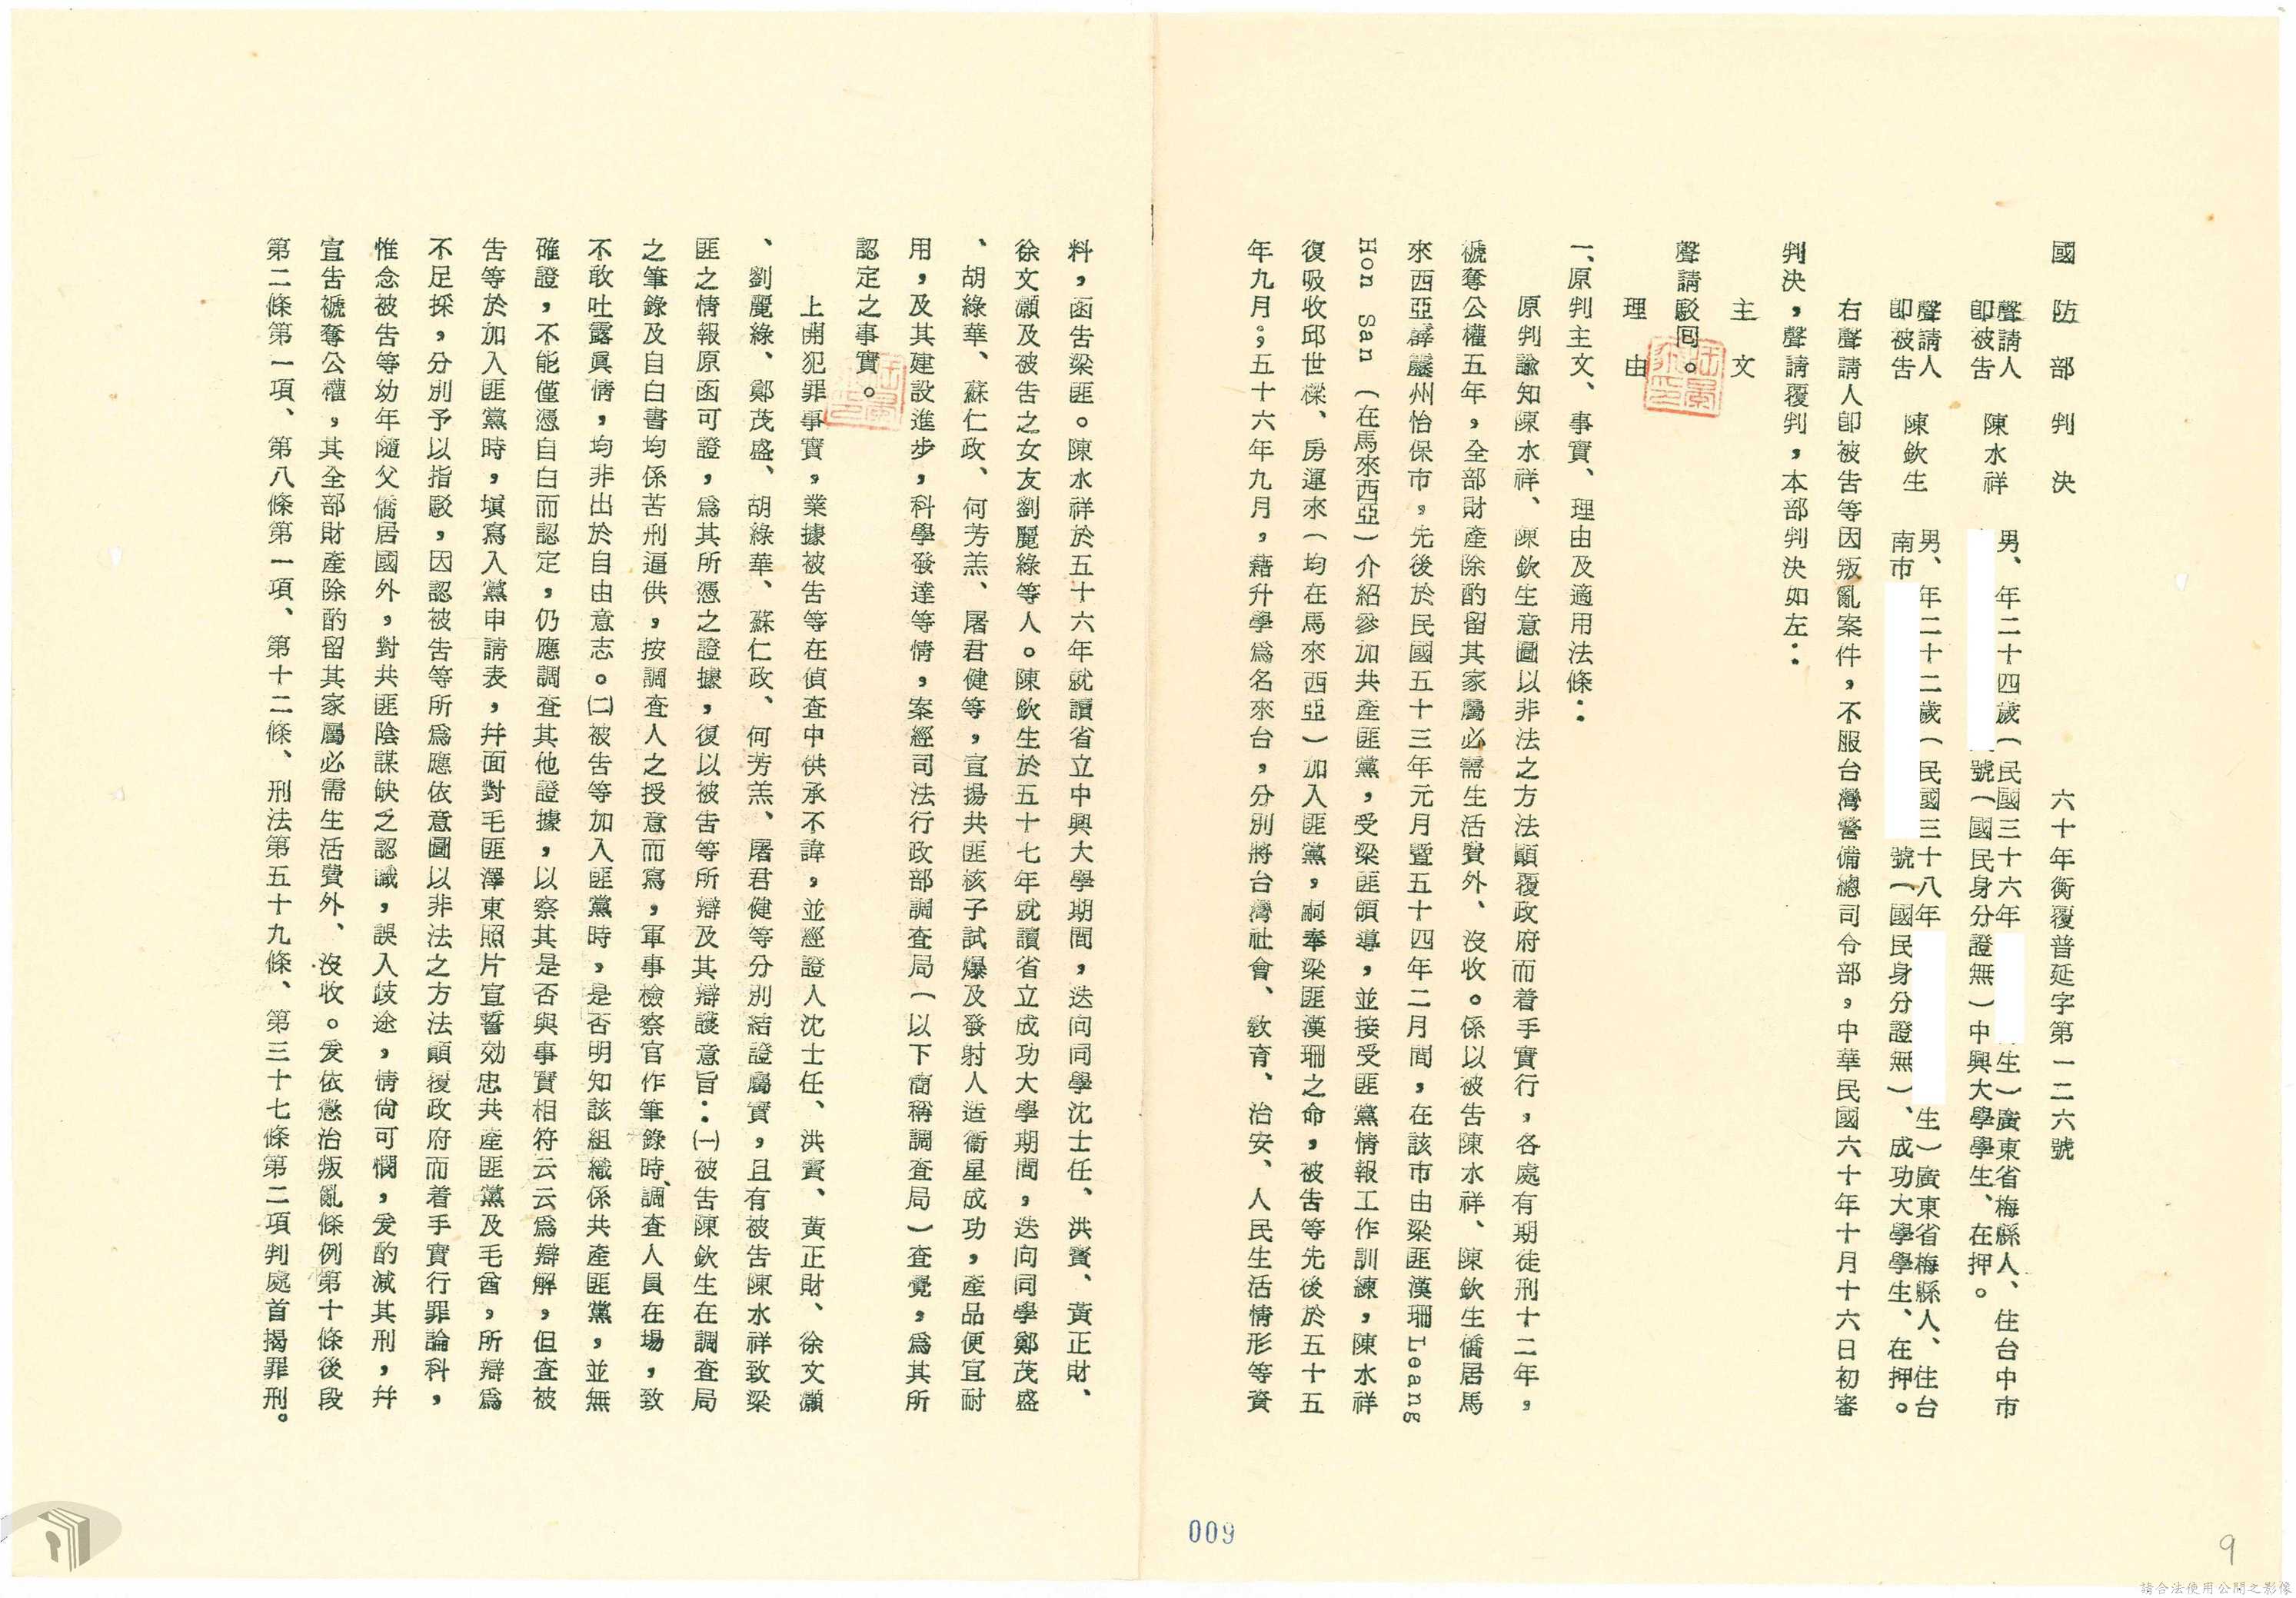 國防部判決　六十年衡覆普延字第一二六號
聲請人
即被告　陳水祥　男、年二十四歲（民國三十六年　生）廣東省梅縣人、住台中市
號（國民身分證無）中興大學學生、在押。
聲請人
即被告　陳欽生　男、年二十二歲（民國三十八年　生）廣東省梅縣人、住台
南市　號（國民身分證無）、成功大學學生、在押。
右聲請人即被告等因叛亂案件，不服台灣警備總司令部，中華民國六十年十月十六日初審
判決，聲請覆判，本部判決如左：
主文
聲請駁回。
理由
一、原判主文、事實、理由及適用法條：
原判諭知陳水祥、陳欽生意圖以非法之方法顚覆政府而着手實行，各處有期徒刑十二年，
褫奪公權五年，全部財產除酌留其家屬必需生活費外、沒收。係以被告陳水祥、陳欽生僑居馬
來西亞霹靂州怡保市，先後於民國五十三年元月暨五十四年二月間，在該市由梁匪漢珊Leang
Hon San（在馬來西亞）介紹參加共產匪黨，受梁匪領導，並接受匪黨情報工作訓練，陳水祥
復吸收邱世樑、房運來（均在馬來西亞）加入匪黨，嗣奉梁匪漢珊之命，被告等先後於五十五
年九月；五十六年九月，藉升學爲名來台，分別將台灣社會、敎育、治安、人民生活情形等資
料，函告梁匪。陳水祥於五十六年就讀省立中興大學期間，迭向同學沈士任、洪賓、黃正財、
徐文灝及被告之女友劉麗綠等人。陳欽生於五十七年就讀省立成功大學期間，迭向同學鄭茂盛
、胡綠華、蘇仁政、何芳羔、屠君健等，宣揚共匪核子試爆及發射人造衞星成功，產品便宜耐
用，及其建設進步，科學發達等情，案經司法行政部調查局（以下簡稱調查局）查覺，爲其所
認定之事實。
上開犯罪事實，業據被告等在偵查中供承不諱，並經證人沈士任、洪賓、黃正財、徐文灝
、劉麗綠、鄭茂盛、胡綠華、蘇仁政、何芳羔、屠君健等分別結證屬實，且有被告陳水祥致梁
匪之情報原函可證，爲其所憑之證據，復以被告等所辯及其辯護意旨：㈠被告陳欽生在調查局
之筆錄及自白書均係苦刑逼供，按調查人之授意而寫，軍事檢察官作筆錄時、調查人員在場，致
不敢吐露眞情，均非出於自由意志。㈡被告等加入匪黨時，是否明知該組織係共產匪黨，並無
確證，不能僅憑自白而認定，仍應調查其他證據，以察其是否與事實相符云云爲辯解，但查被
告等於加入匪黨時，塡寫入黨申請表，幷面對毛匪澤東照片宣誓効忠共產匪黨及毛酋，所辯爲
不足採，分別予以指駁，因認被告等所爲應依意圖以非法之方法顚覆政府而着手實行罪論科，
惟念被告等幼年隨父僑居國外，對共匪陰謀缺乏認識，誤入歧途，情尙可憫，爰酌減其刑，幷
宣告褫奪公權，其全部財產除酌留其家屬必需生活費外、沒收。爰依懲治叛亂條例第十條後段
第二條第一項、第八條第一項、第十二條、刑法第五十九條、第三十七條第二項判處首揭罪刑。
009
9
請合法使用公開之影像